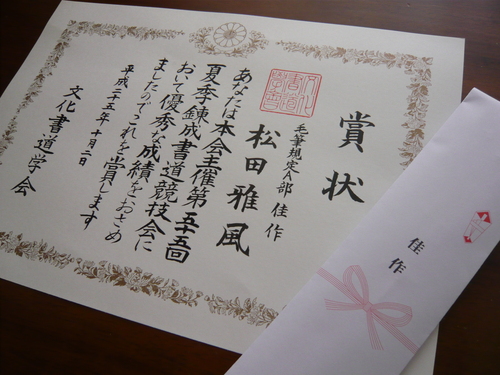 賞状
毛筆規定A部 佳作
松田雅風
あなたは本会主催第五十五回
夏季錬成書道競技会に
おいて優秀な成績をおさめ
ましたのでこれを賞します
平成二十五年十月二日
文化書道学会
佳作